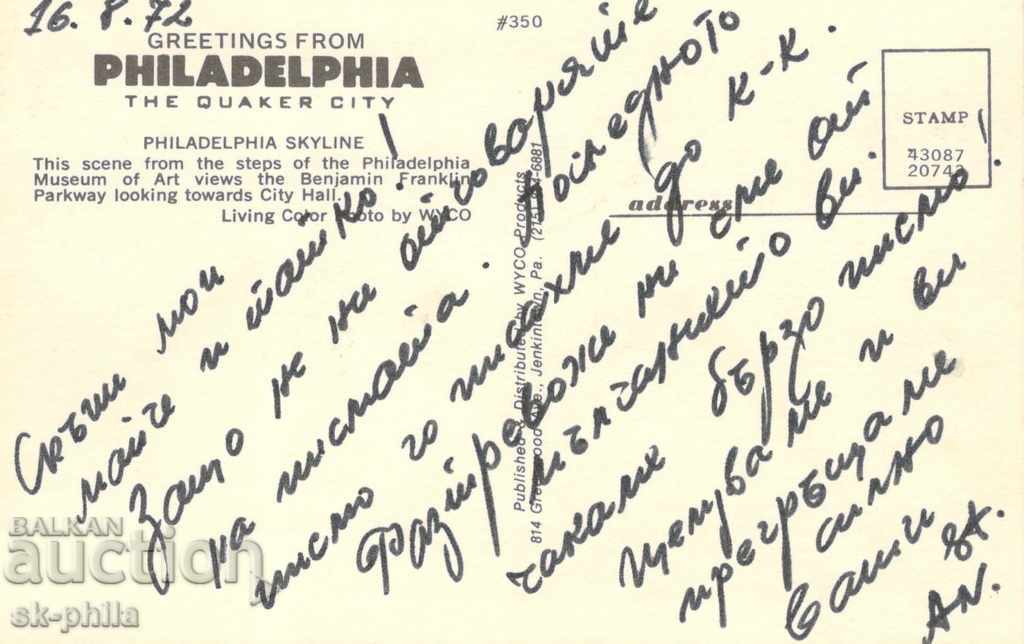 16.8.72
#350
GREETINGS FROM
PHILADELPHIA
THE QUAKER CITY
PHILADELPHIA SKYLINE
This scene from the steps of the Philadelphia
Museum of Art views the Benjamin Franklin
Parkway looking towards City Hall.
Living Color Photo by WYCO
Published & Distributed by WYCO Products
814 Greenwood Ave., Jenkintown, Pa. (215)
STAMP
43087
20743
address
Скъпи мои
майче и татко!
Защо не ни отговаряте
на писмата. Последното
писмо го писахме до к-к.
ни сте от
ви!
чакаме бързо писмо.
Целуваме и ви
прегръщаме
силно
Ваши
BALKAN
auction
sk-phila